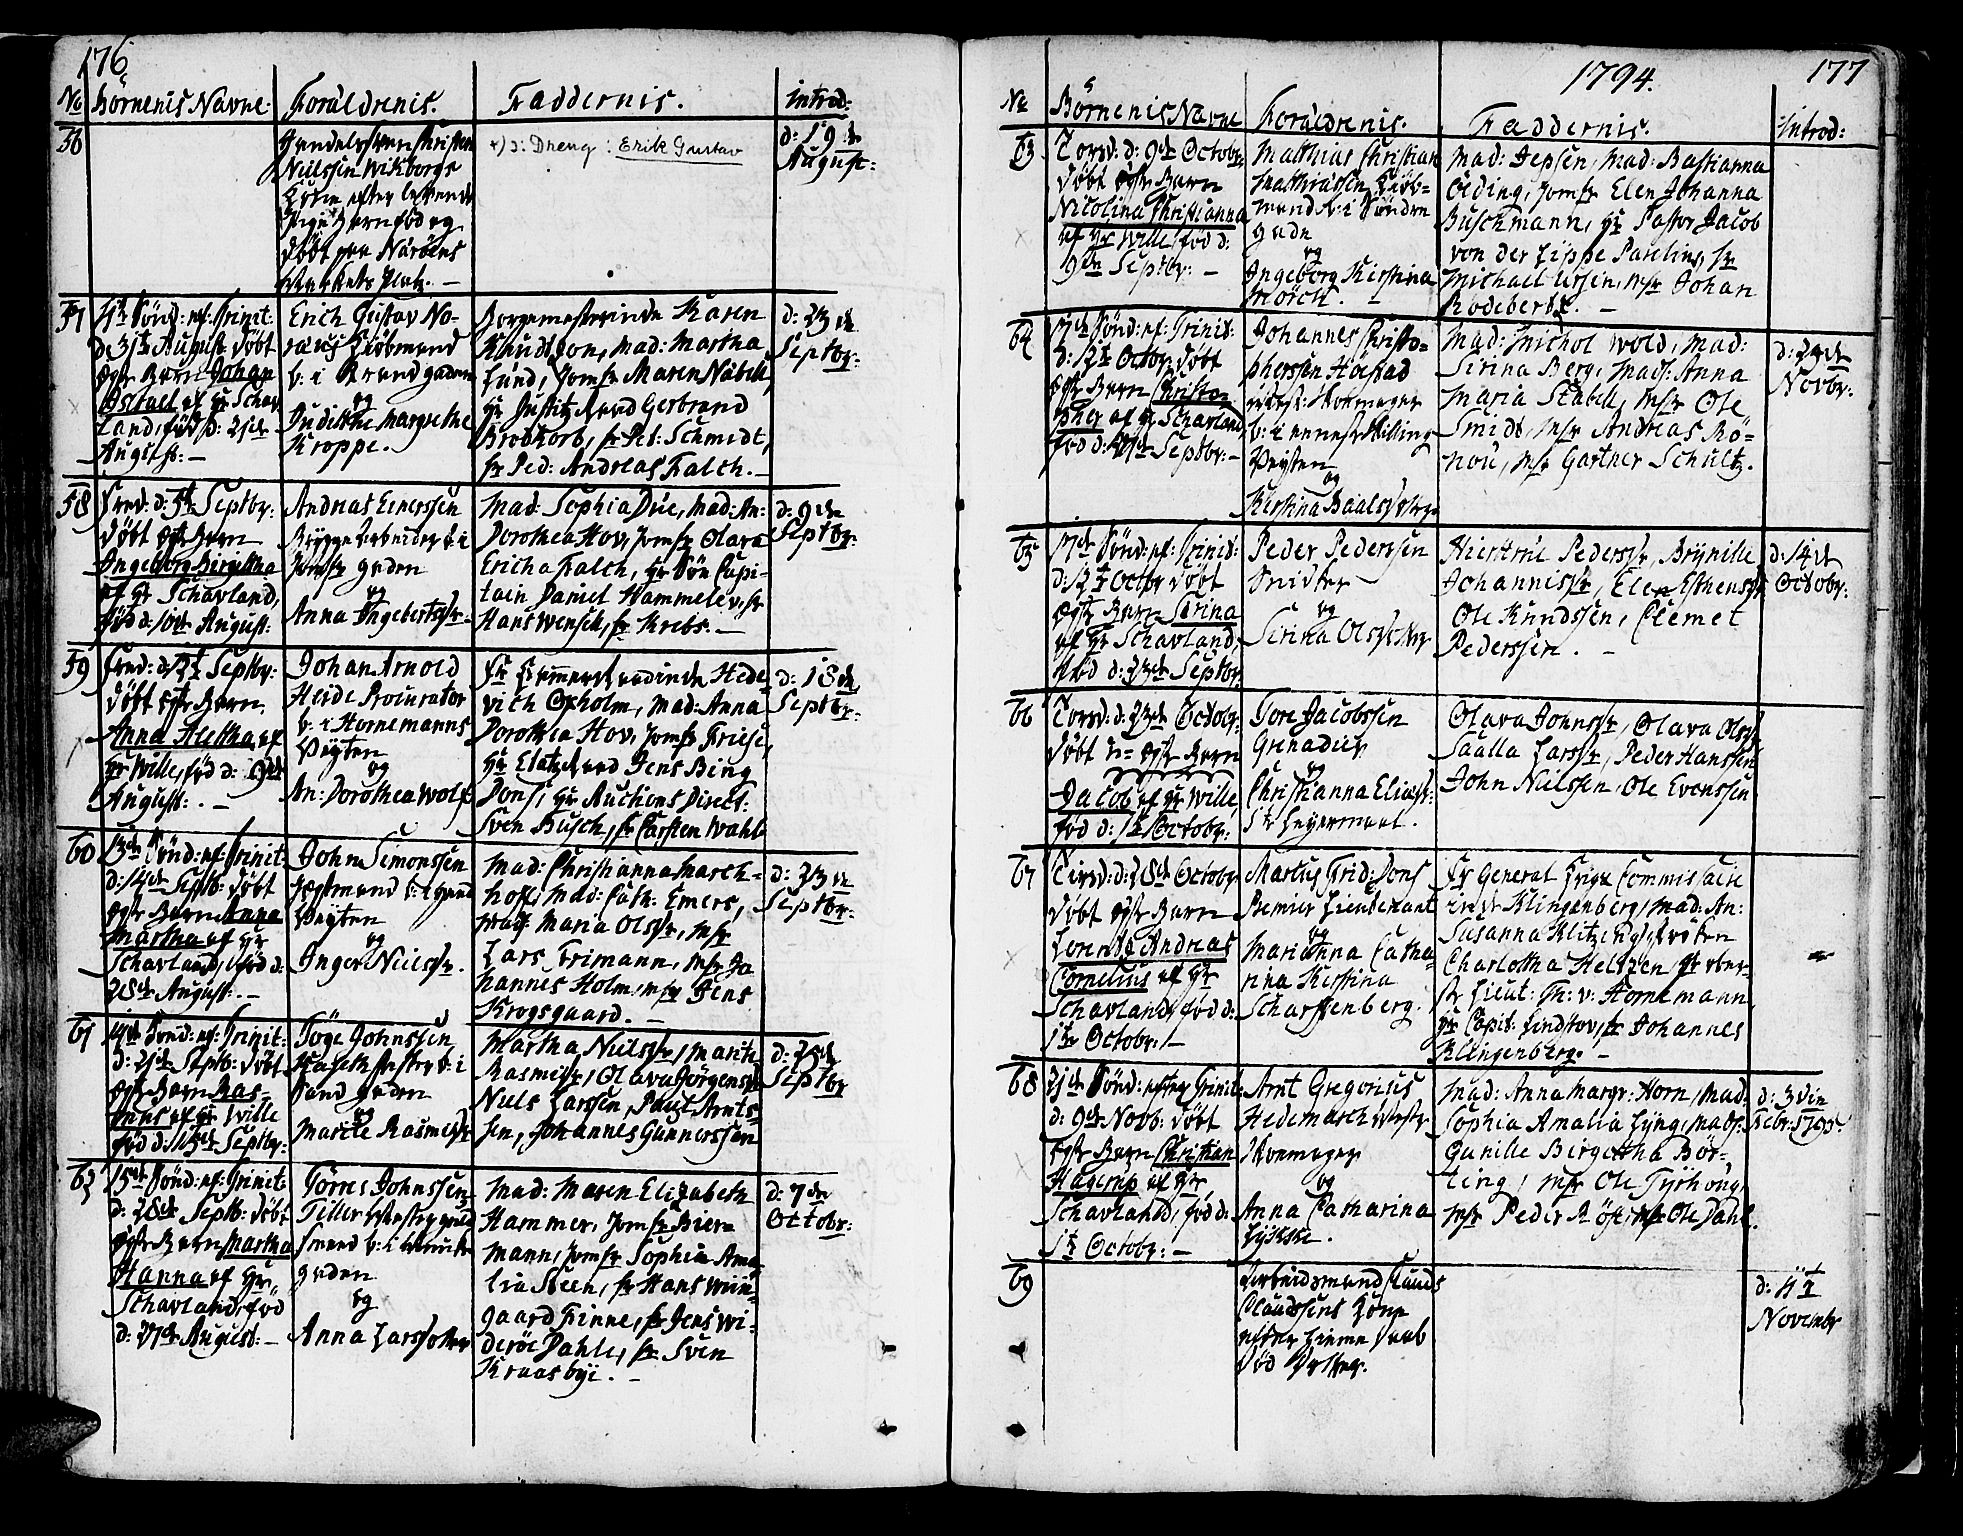 176
No Börnenis Navne: Forældrenis. Faddernis. Introd:
56
Nielssen Wikborgs
Kone efter
döbt paa Näröens
Værkets Platz. —
x) ɔ: Dreng: Erik Gustav
d: 19de
August:
57
Sönd: ef: Trinit:
d: 31te August döbt
Barn Johan
Istael af Hr Schav
land, föd d: 21de
August: —
Erich Gustav No-
b: i Strandgaden
og
Judithe Margrethe
Kroppe.
Borgemesterinde Karen
Knudtzon, Mad: Martha
Lund, Jomfr Maren Nabell,
Hr Justitzraad Gerbrand
Brobkorb, Sr Ped: Schmidt,
Sr Ped: Andreas Falch. —
d: 23de
Septbr:
58
Fred: d: 5te Septbr:
döbt Barn
Ingeborg Birgitha
af Hr Schavland,
föd d: 10de August:
Andreas Einerssen
Brygge Arbeider b: i
Jomfr gaden
og
Anna Ingebertsdr —
Mad: Sophia Due, Mad: An:
Dorothea Hov, Jomfr Olava
Ericha Falch, Hr Sön Capi-
tain Daniel Hammelev, Sr
Hans Wensell, Sr Krebs. —
d: 9de
Septbr:
59
Fred: d: 12te Septbr:
döbt Barn
Anna Aletha af
Hr Wille, föd d: 19de
August: . —
Johan Arnold
Heide Procurator
b: i Hornemanns
Veyten
og
An: Dorothea Wolf
Fr Hede-
vich Oxholm, Mad: Anna
Dorothea Hov, Jomfr Friese,
Hr Etatzraad Jens Bing
Dons, Hr Auctions Direct:
Sven Busch, Sr Carsten Wahl
d: 18de
Septbr:
60
13de Sönd: ef: Trinit:
d: 14de Septb: döbt
Barn Anna
Martha af Hr
Schavland, föd d:
28de August: . —
John Simonssen
Veyten
og
Inger Nielsdr.
Mad: Christianna Masch-
hoff, Mad: Cath: Emers,
Mad: Maria Olsdr, Msr
Lars Frimann, Msr Jo
hannes Holm, Msr Jens
Krogsgaard. —
d: 23de
Septbr:
61
14de Sönd: ef: Trinit:
d: 21de Septb: döbt
Barn Ras-
mus af Hr Wille
föd d: 13de Septbr:
Töge Johnssen
b: i
Sand gaden
og
Marite Rasmusdr
Martha Nielsdr, Marite
Rasmusdr, Olava Jörgensdr
Niels Larssen, Paul Arnts-
sen, Johannes Gunnerssen
d: 25de
Septbr
62
15de Sönd: ef: Trinit:
d: 28de Septb: döbt
Barn Martha
Hanna af Hr
Schavland, föd
d: 27de August: —
Törres Johnssen
Tiller
b: i
gaden
og
Anna Larsdotter
Mad: Maren Elizabeth
Hammer, Jomfr Bier-
mann, Jomfr Sophia Ama-
lia Steen, Sr Hans Wiin-
gaard Finne, Sr Jens Wi-
deröe Dahle, Sr Sven
Kraasbyi. —
d: 7de
Octobr:
1794. 177
No Börnenis Navne Forældrenis. Faddernis. Introd:
63
Torsd: d: 9de Octobr
döbt Barn
Nicolina Christianna
af Hr Wille, föd d:
19de Septbr: —
Matthias Christian
Matthiassen Kiöb-
mand b: i Söndre
gade
og
Ingeborg Kirstina
Mörch. —
Mad: Jepsen, Mad: Bastianna
Ölding, Jomfr Elen Johanna
Buschmann, Hr Pastor Jacob
von der Lippe Parelius, Sr
Michael Ursin, Msr Johan
Rodebertz. —
64
17de Sönd: ef: Trinit:
d: 12te Octobr döbt
Barn Christo-
pher af Hr Schavland,
föd d: 17de Septbr: —
Johannes Christo-
pherssen Höistad
Skomager
Veyten
og
Kirstina Baalsdotter
Mad: Michol Wold, Mad:
Sirina Berg, Mad: Anna
Maria Stabell, Msr Ole
Smidt, Msr Andreas Rö-
nou, Msr Gartner Schultz.
d: 24de
Novbr:
65
17de Sönd: ef: Trinit:
d: 12te Octbr döbt
Barn Serina
af Hr Schavland,
föd d: 23de Septbr
Peder Pederssen
Snidker
og
Sirina Olsdotter
Kierstine Pedersdr, Brynille
Johannesdr, Elen Esthensdr
Ole Knudssen, Clemet
Pederssen. —
d: 14de
Octobr:
66
Torsd: d: 23de Octobr:
döbt Barn
Jacob af Hr Wille,
föd d: 1te Octobr:
Tore Jacobssen
Grenadier
og
Christianna Eliasdr:
Leyermaal.
Olava Johnsdr, Olava Olsdr
Saalla Larsdr, Peder Hanssen
John Nielssen, Ole Evenssen
67
Tirsd: d: 28de Octobr
döbt Barn
Lorentz Andreas
Cornelius af Hr
Schavland, föd d:
1te Octobr: —
Marcus Frid: Dons
Premier Lieutenant
og
Marianna Catha-
rina Kirstina
Scharffenberg.
Fr General Krigs Commissair
inde Klingenberg, Mad: An:
Susanna Klitzing, Fröken
Charlottha Heltzen, Hr ober-
st Lieut: Th: v: Hornemann,
Hr Capit: Lindstov, Sr Johannes
Klingenberg. —
68
21de Sönd: efter Trinit:
d: 9de Novb: döbt
Barn Christian
Hagerup af Hr
Schavland, föd d:
5te Octobr: —
Arnt Gregorius
Hedemarch
Skomager
og
Anna Catharina
Lykke.
Mad: Anna Margr: Horn, Mad:
Sophia Amalia Lyng, Mad:
Gunille Birgittha Bör-
ting, Msr Ole Tyrhoug,
Msr Peder Röst, Msr Ole Dahl.
d: 3die
Febr: 1795.
69
Arbeidsmand Claus
Claudssens Kone
död Datter.
d: 11te
Novembr